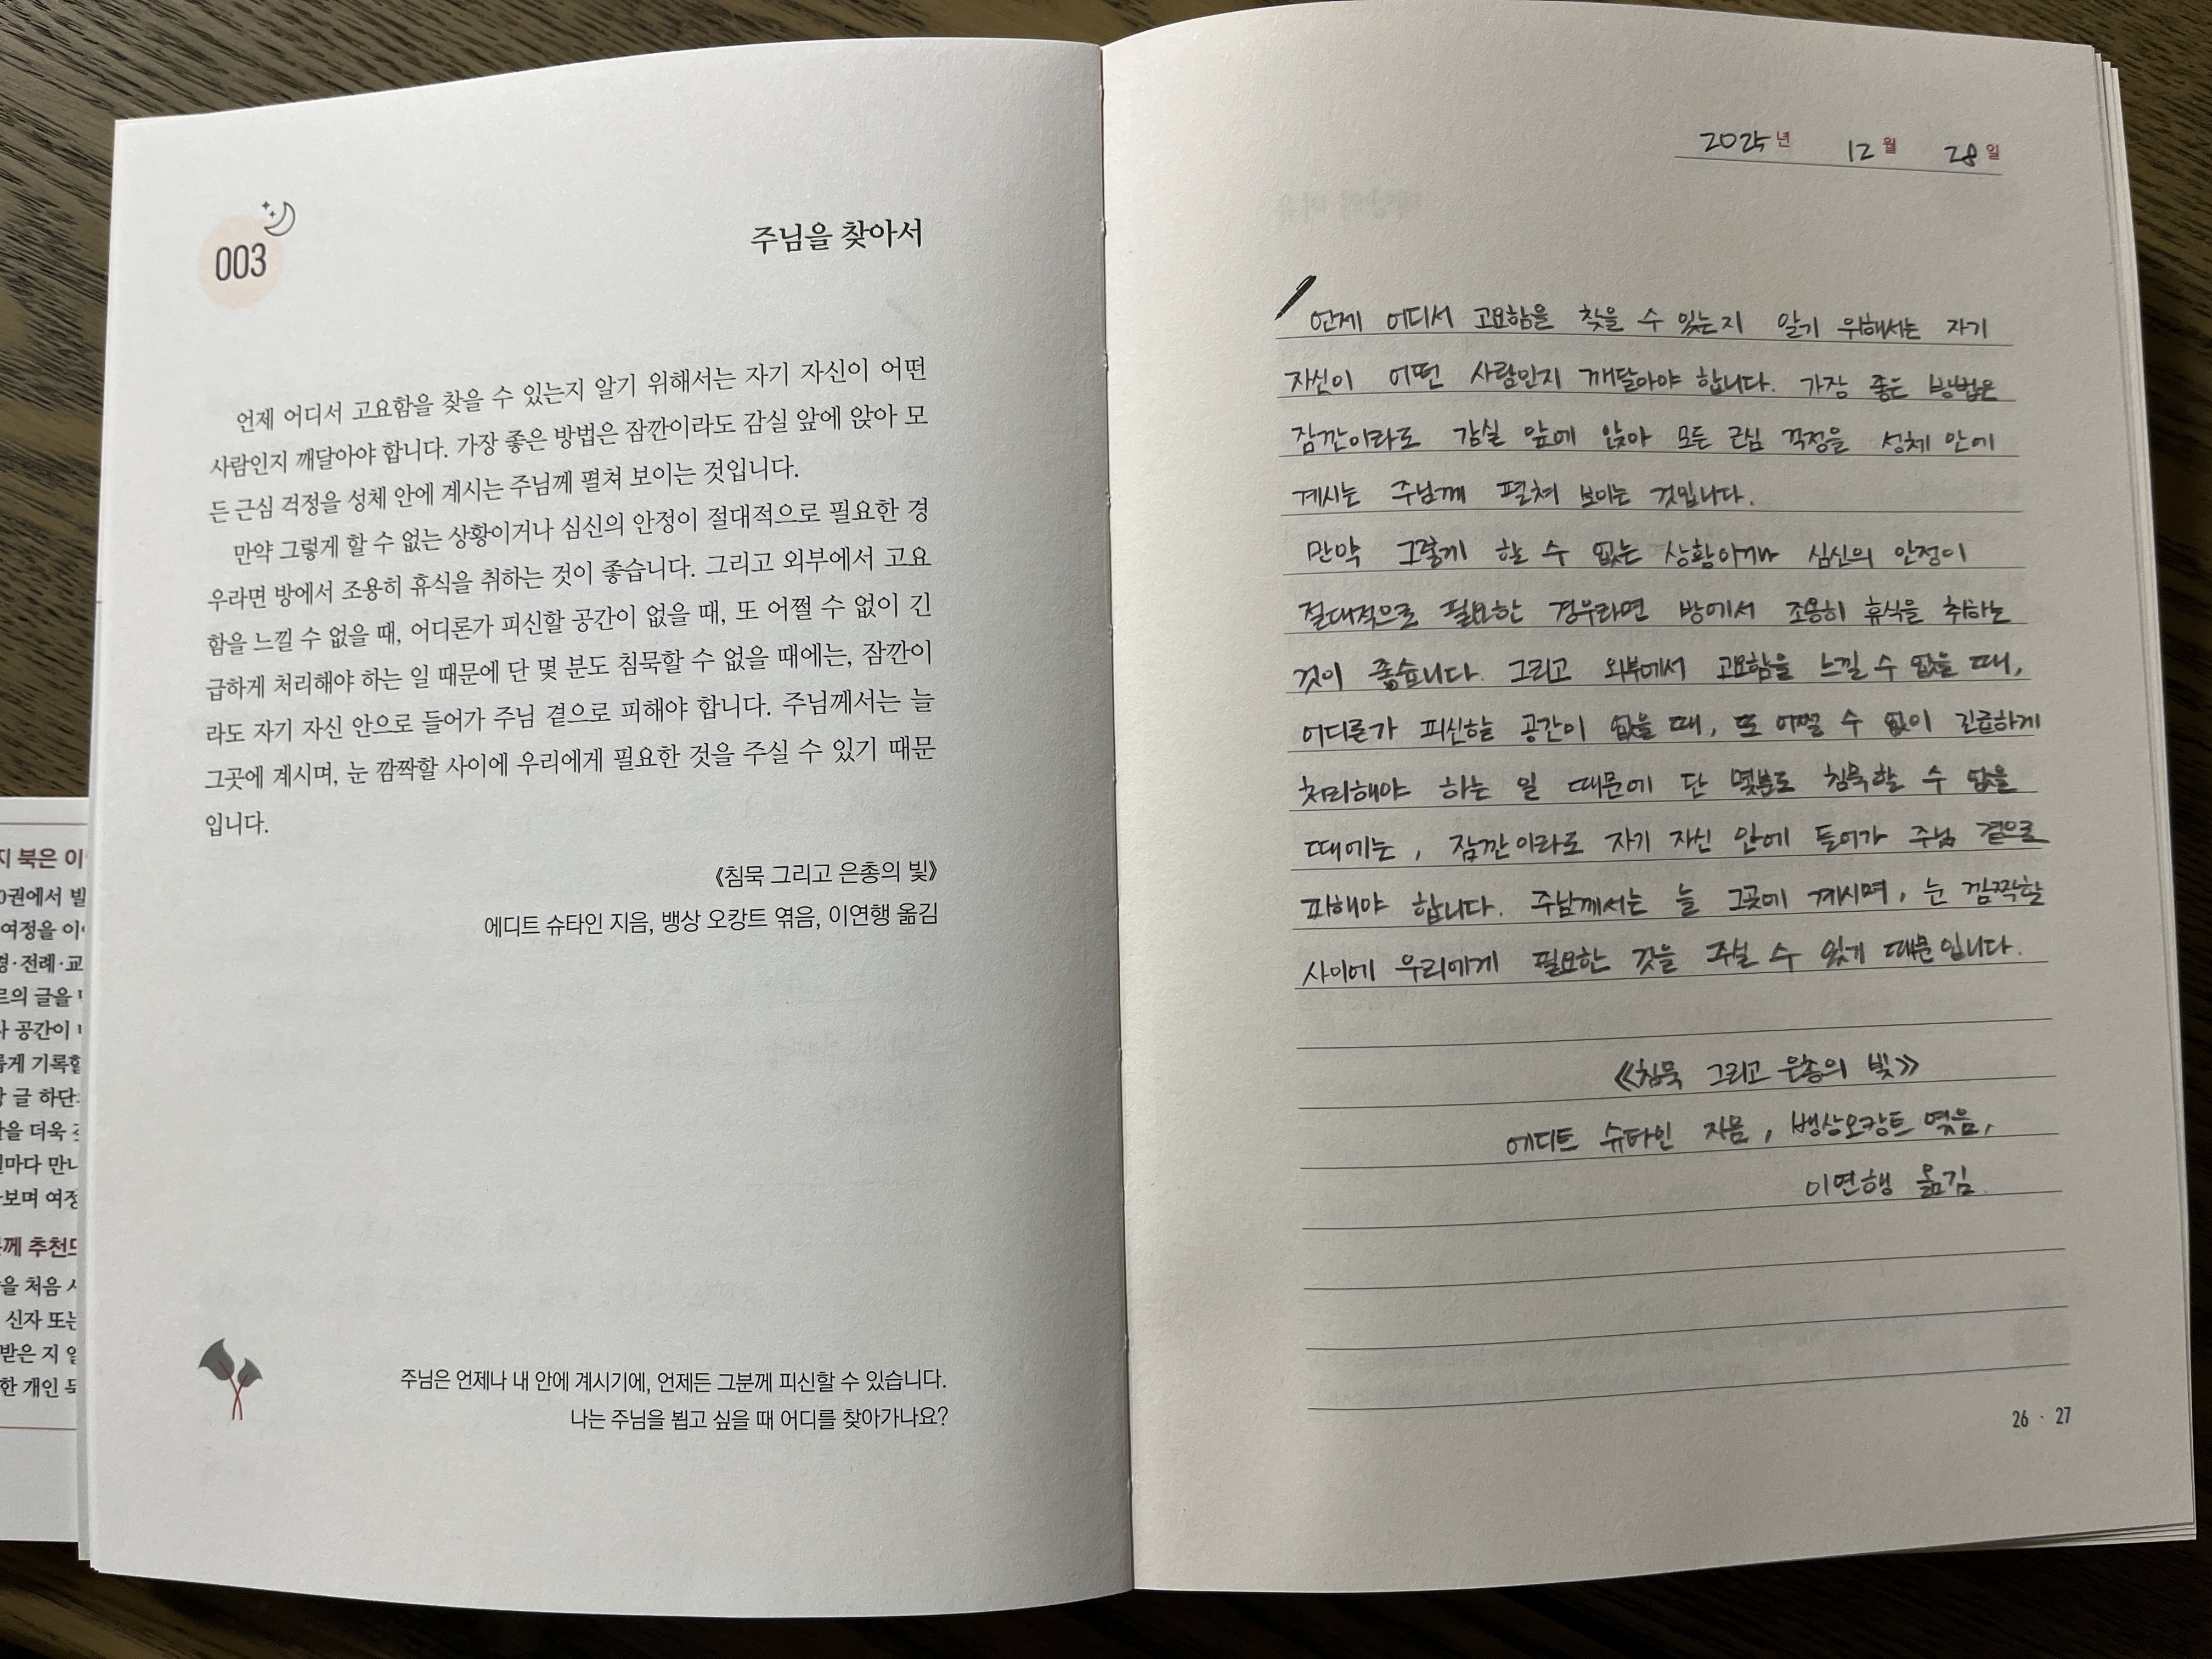 003
주님을 찾아서
언제 어디서 고요함을 찾을 수 있는지 알기 위해서는 자기 자신이 어떤
사람인지 깨달아야 합니다. 가장 좋은 방법은 잠깐이라도 감실 앞에 앉아 모
든 근심 걱정을 성체 안에 계시는 주님께 펼쳐 보이는 것입니다.
만약 그렇게 할 수 없는 상황이거나 심신의 안정이 절대적으로 필요한 경
우라면 방에서 조용히 휴식을 취하는 것이 좋습니다. 그리고 외부에서 고요
함을 느낄 수 없을 때, 어디론가 피신할 공간이 없을 때, 또 어쩔 수 없이 긴
급하게 처리해야 하는 일 때문에 단 몇 분도 침묵할 수 없을 때에는, 잠깐이
라도 자기 자신 안으로 들어가 주님 곁으로 피해야 합니다. 주님께서는 늘
그곳에 계시며, 눈 깜짝할 사이에 우리에게 필요한 것을 주실 수 있기 때문
입니다.
《침묵 그리고 은총의 빛》
에디트 슈타인 지음, 뱅상 오캉트 엮음, 이연행 옮김
주님은 언제나 내 안에 계시기에, 언제든 그분께 피신할 수 있습니다.
나는 주님을 뵙고 싶을 때 어디를 찾아가나요?
지 북은
0권에서
여정을
전례·교
의 글을
공간이
기록할
글 하단
더욱
만나
보며 여정
께 추천
을 처음
신자 또는
받은 지
한 개인
2025년 12월 28일
언제 어디서 고요함을 찾을 수 있는지 알기 위해서는 자기
자신이 어떤 사람인지 깨달아야 합니다. 가장 좋은 방법은
잠깐이라도 감실 앞에 앉아 모든 근심 걱정을 성체 안에
계시는 주님께 펼쳐 보이는 것입니다.
만약 그렇게 할 수 없는 상황이거나 심신의 안정이
절대적으로 필요한 경우라면 방에서 조용히 휴식을 취하는
것이 좋습니다. 그리고 외부에서 고요함을 느낄 수 없을 때,
어디론가 피신할 공간이 없을 때, 또 어쩔 수 없이 긴급하게
처리해야 하는 일 때문에 단 몇분도 침묵할 수 없을
때에는, 잠깐이라도 자기 자신 안에 들어가 주님 곁으로
피해야 합니다. 주님께서는 늘 그곳에 계시며, 눈 깜짝할
사이에 우리에게 필요한 것을 주실 수 있기 때문입니다.
《침묵 그리고 은총의 빛》
에디트 슈타인 지음, 뱅상오캉트 엮음,
이연행 옮김
26 · 27